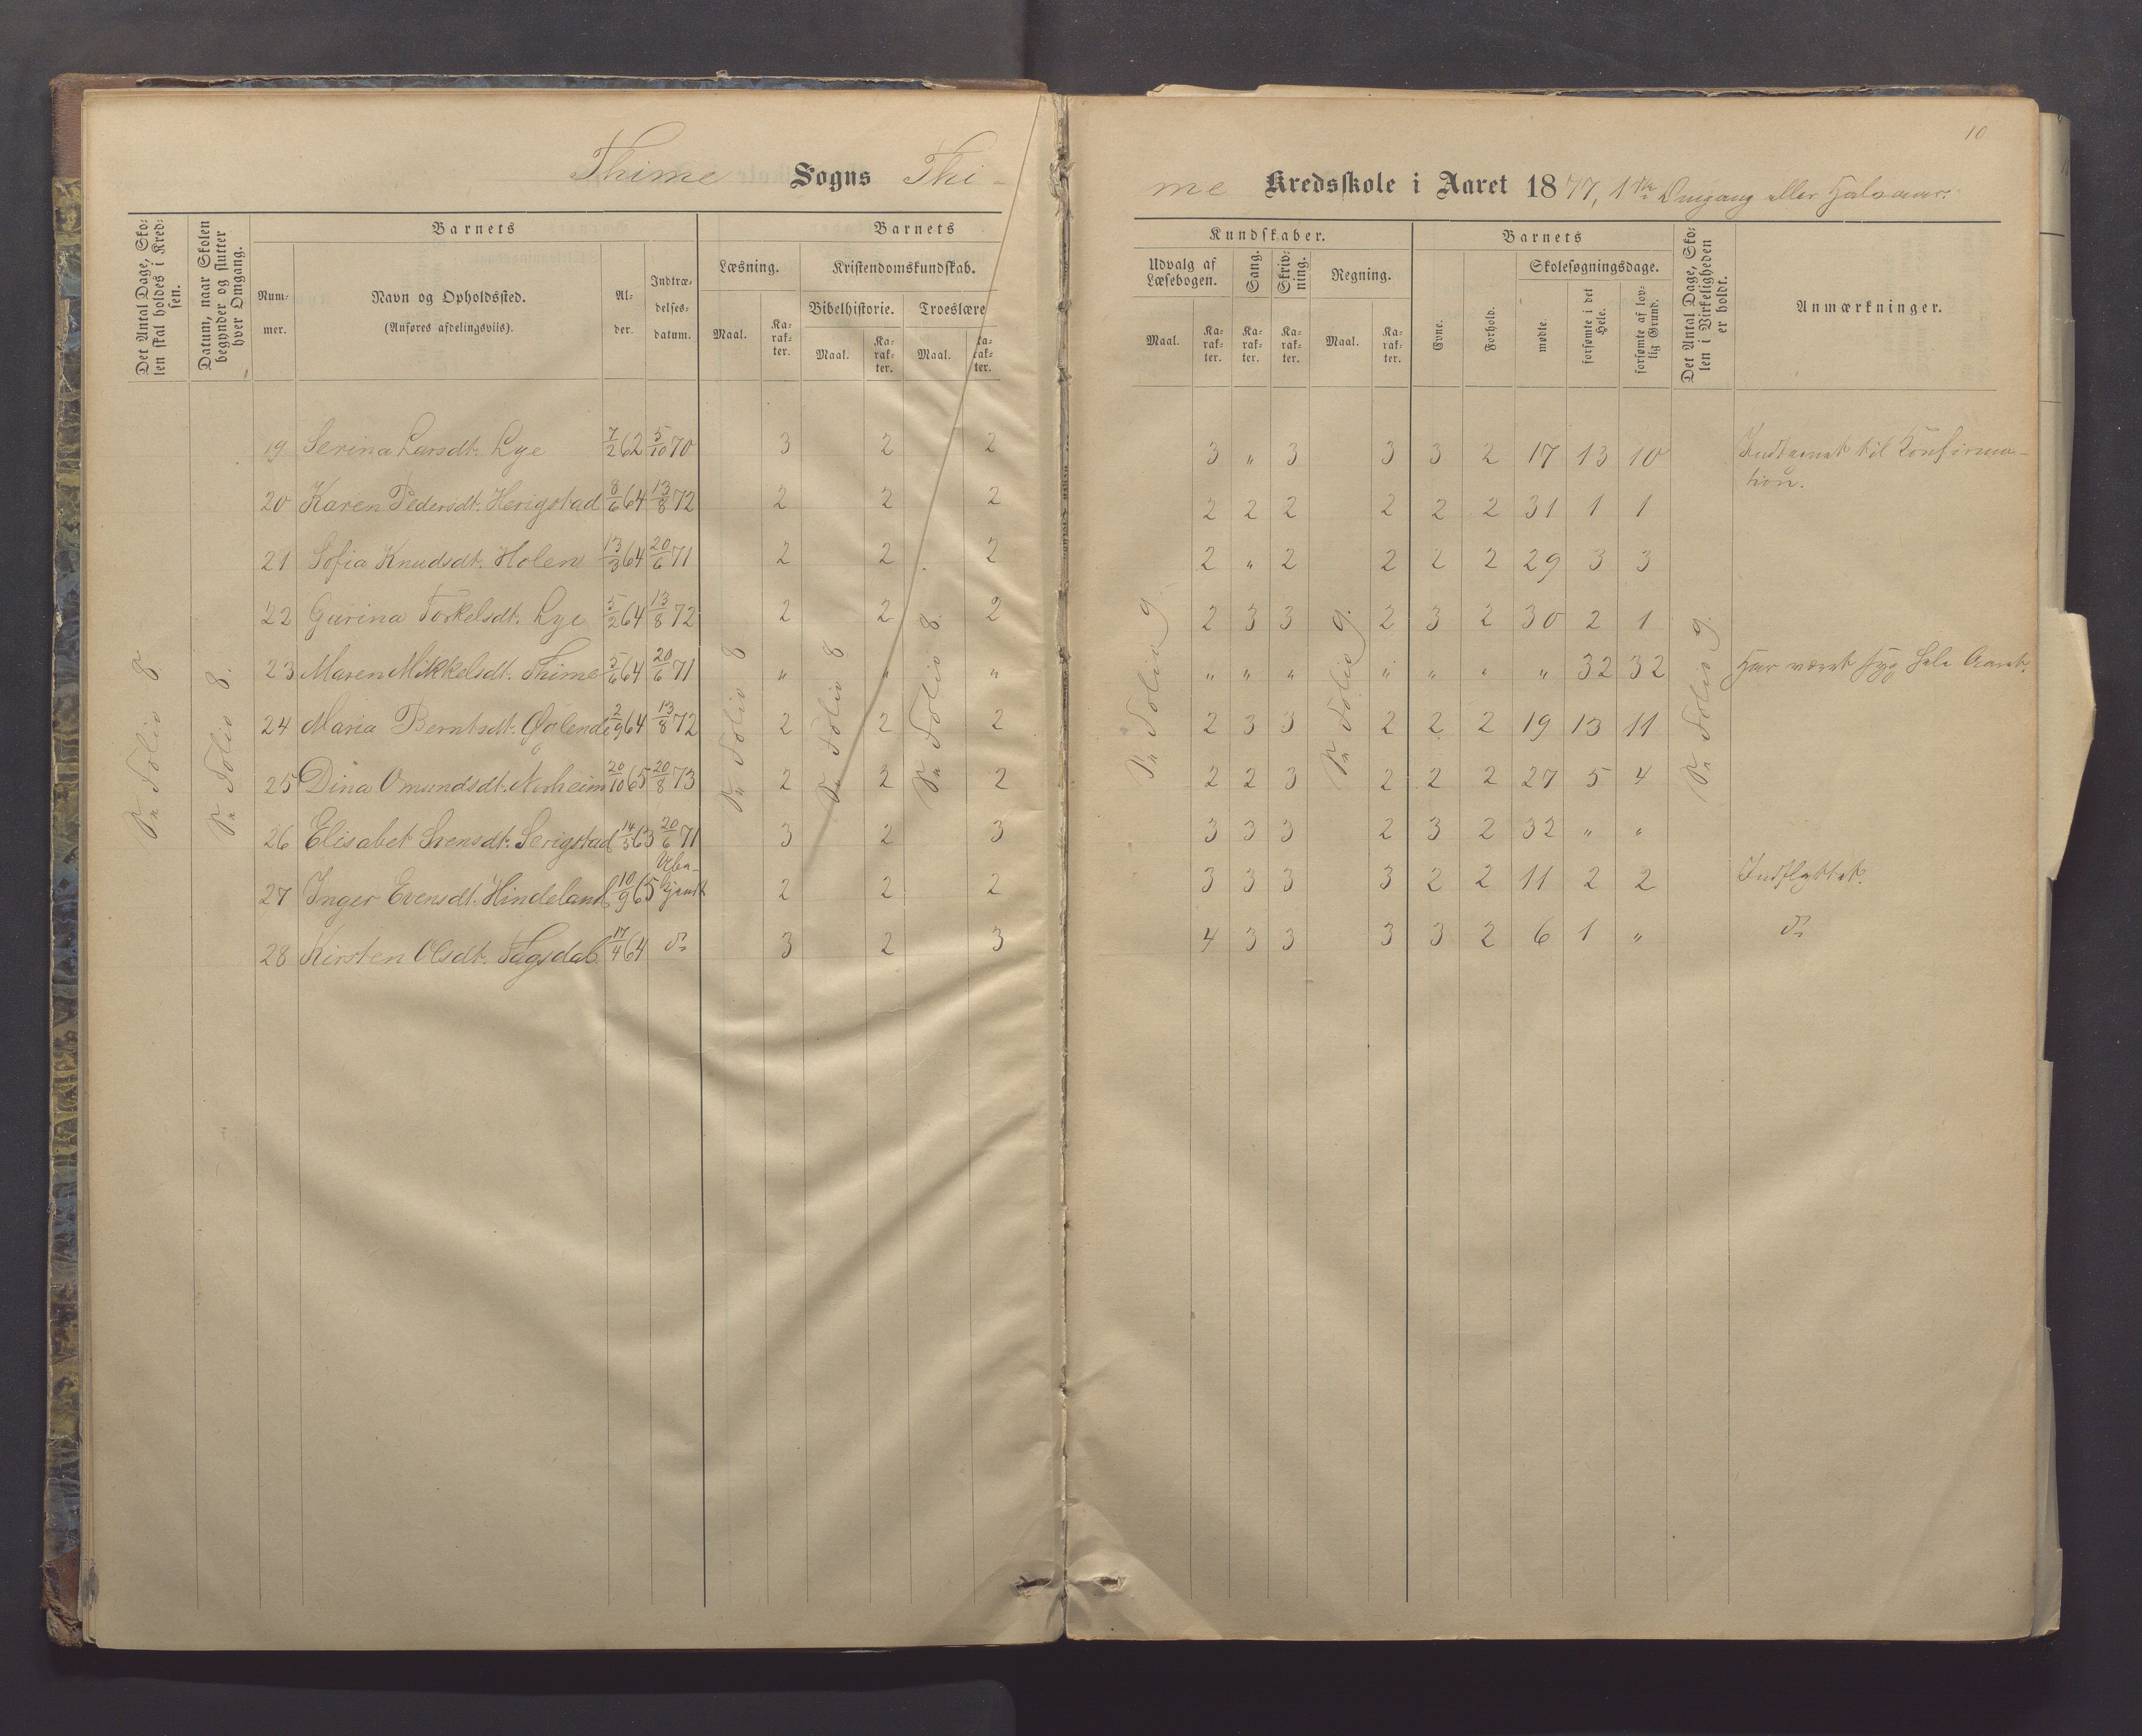 10
Thime Sogns Thi-
me Kredsskole i Aaret 1877, 1ste Omgang eller Halvaar.
Det Antal Dage, Sko-
len skal holdes i Kred-
sen.
Datum, naar Skolen
begynder og slutter
hver Omgang.
Barnets
Num-
mer.
Navn og Opholdssted.
(Anføres afdelingsviis).
Al-
der.
Indtræ-
delses-
datum.
Barnets
Læsning.
Maal.
Ka-
rak-
ter.
Kristendomskundskab.
Bibelhistorie.
Maal.
Ka-
rak-
ter.
Troeslære
Maal.
Ka-
rak-
ter.
Kundskaber.
Udvalg af
Læsebogen.
Maal.
Ka-
rak-
ter.
Sang.
Ka-
rak-
ter.
Skriv-
ning.
Ka-
rak-
ter.
Regning.
Maal.
Ka-
rak-
ter.
Barnets
Evne.
Forhold.
Skolesøgningsdage.
mødte.
forsømte i det
Hele.
forsømte af lov-
lig Grund.
Det Antal Dage, Sko-
len i Virkeligheden
er holdt.
Anmærkninger.
19 Serina Larsdt. Lye 7/2 62 5/10 70 3 2 2 3 " 3 3 3 2 17 13 10 Udtaget til Konfirma-
tion.
20 Karen Pedersdt. Herigstad 8/6 64 13/8 72 2 2 2 2 2 2 2 2 2 31 1 1
21 Sofia Knudsdt. Holen 13/3 64 20/6 71 2 2 2 2 " 2 2 2 2 29 3 3
22 Gurina Torkelsdt. Lye 5/2 64 13/8 72 2 2 2 2 3 3 2 3 2 30 2 1
23 Maren Mikkelsdt. Thime 5/6 64 20/6 71 " " " " " " " " " " 32 32 Har været syg hele Aaret.
24 Maria Berntsdt. Øglend 2/9 64 13/8 72 2 2 2 2 3 3 2 2 2 19 13 11
25 Dina Omundsdt. Norheim 20/10 65 20/8 73 2 2 2 2 2 3 2 2 2 27 5 4
26 Elisabet Svensdt. Serigstad 14/5 63 20/6 71 3 2 3 3 3 3 2 3 2 32 " "
27 Inger Evensdt. Hindeland 10/9 65 Ube-
kjendt 2 2 2 3 3 3 3 2 2 11 2 2 Indflyttet.
28 Kirsten Olsdt. 17/4 64 do 3 2 3 4 3 3 3 3 2 6 1 " do
Se Folio 8
Se Folio 8.
Se Folio 8
Se Folio 8
Se Folio 8.
Se Folio 9
Se Folio 9.
Se Folio 9.